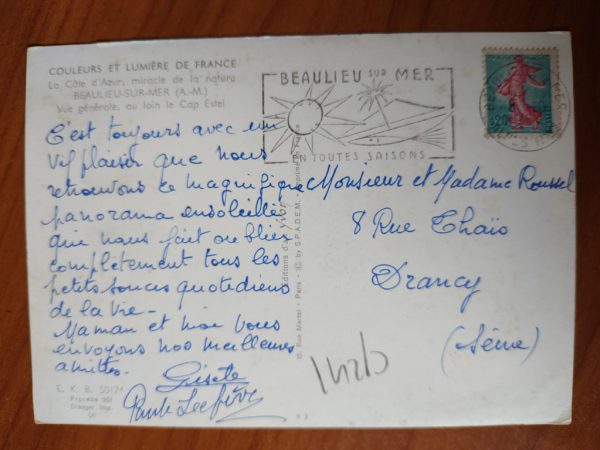 COULEURS ET LUMIÈRE DE FRANCE
La Côte d'Azur, miracle de la nature
BEAULIEU-SUR-MER (A.-M.)
Vue générale, au loin le Cap Estel
C'est toujours avec un
vif plaisir que nous
retrouvons ce magnifique
panorama ensoleillé
qui nous fait oublier
complètement tous les
petits soucis quotidiens
de la vie -
Maman et moi vous
envoyons nos meilleures
amitiés.
Gisèle
Lefèvre
E. K. B. 501
BEAULIEU SUR MER
EN TOUTES SAISONS
Éditions d'art
10, Rue Martel - Paris - © by S.P.A.D.E.M. - Imprimé en France
Monsieur et Madame Roussel
8 Rue Thaïs
Drancy
(Seine)